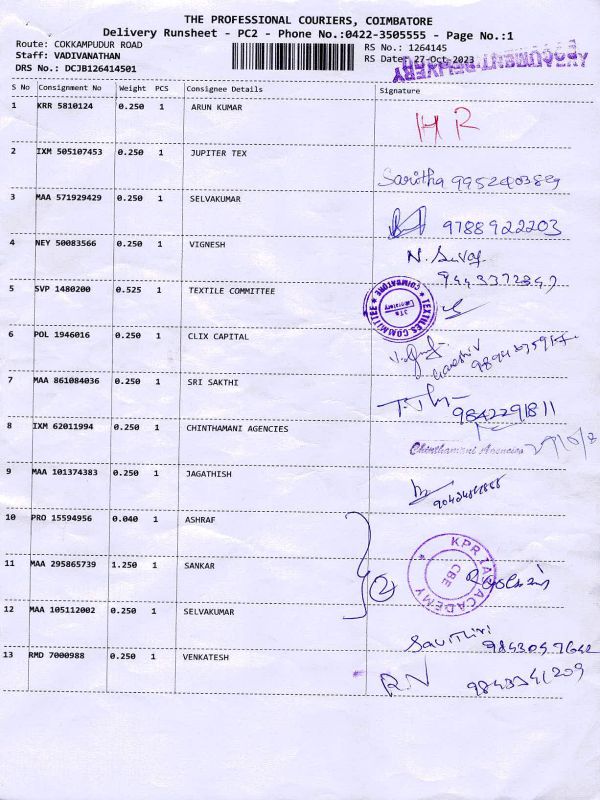 THE PROFESSIONAL COURIERS, COIMBATORE
Delivery Runsheet - PC2 - Phone No.:0422-3505555 - Page No.:1
Route: COKKAMPUDUR ROAD RS No.: 1264145
Staff: VADIVANATHAN RS Date: 27-Oct-2023
DRS No.: DCJB126414501
S No Consignment No Weight PCS Consignee Details Signature
1 KRR 5810124 0.250 1 ARUN KUMAR HR
2 IXM 505107453 0.250 1 JUPITER TEX
Saritha 9952403889
3 MAA 571929429 0.250 1 SELVAKUMAR
9788922203
4 NEY 50083566 0.250 1 VIGNESH
5 SVP 1480200 0.525 1 TEXTILE COMMITTEE
TEXTILES COMMITTEE ★ COIMBATORE ★
6 POL 1946016 0.250 1 CLIX CAPITAL
7 MAA 861084036 0.250 1 SRI SAKTHI
9842291811
8 IXM 62011994 0.250 1 CHINTHAMANI AGENCIES
Chinthamani Agencies
9 MAA 101374383 0.250 1 JAGATHISH
10 PRO 15594956 0.040 1 ASHRAF
11 MAA 295865739 1.250 1 SANKAR
KPR IAS ACADEMY
CBE
2
12 MAA 105112002 0.250 1 SELVAKUMAR
13 RMD 7000988 0.250 1 VENKATESH
R.N 9843341209